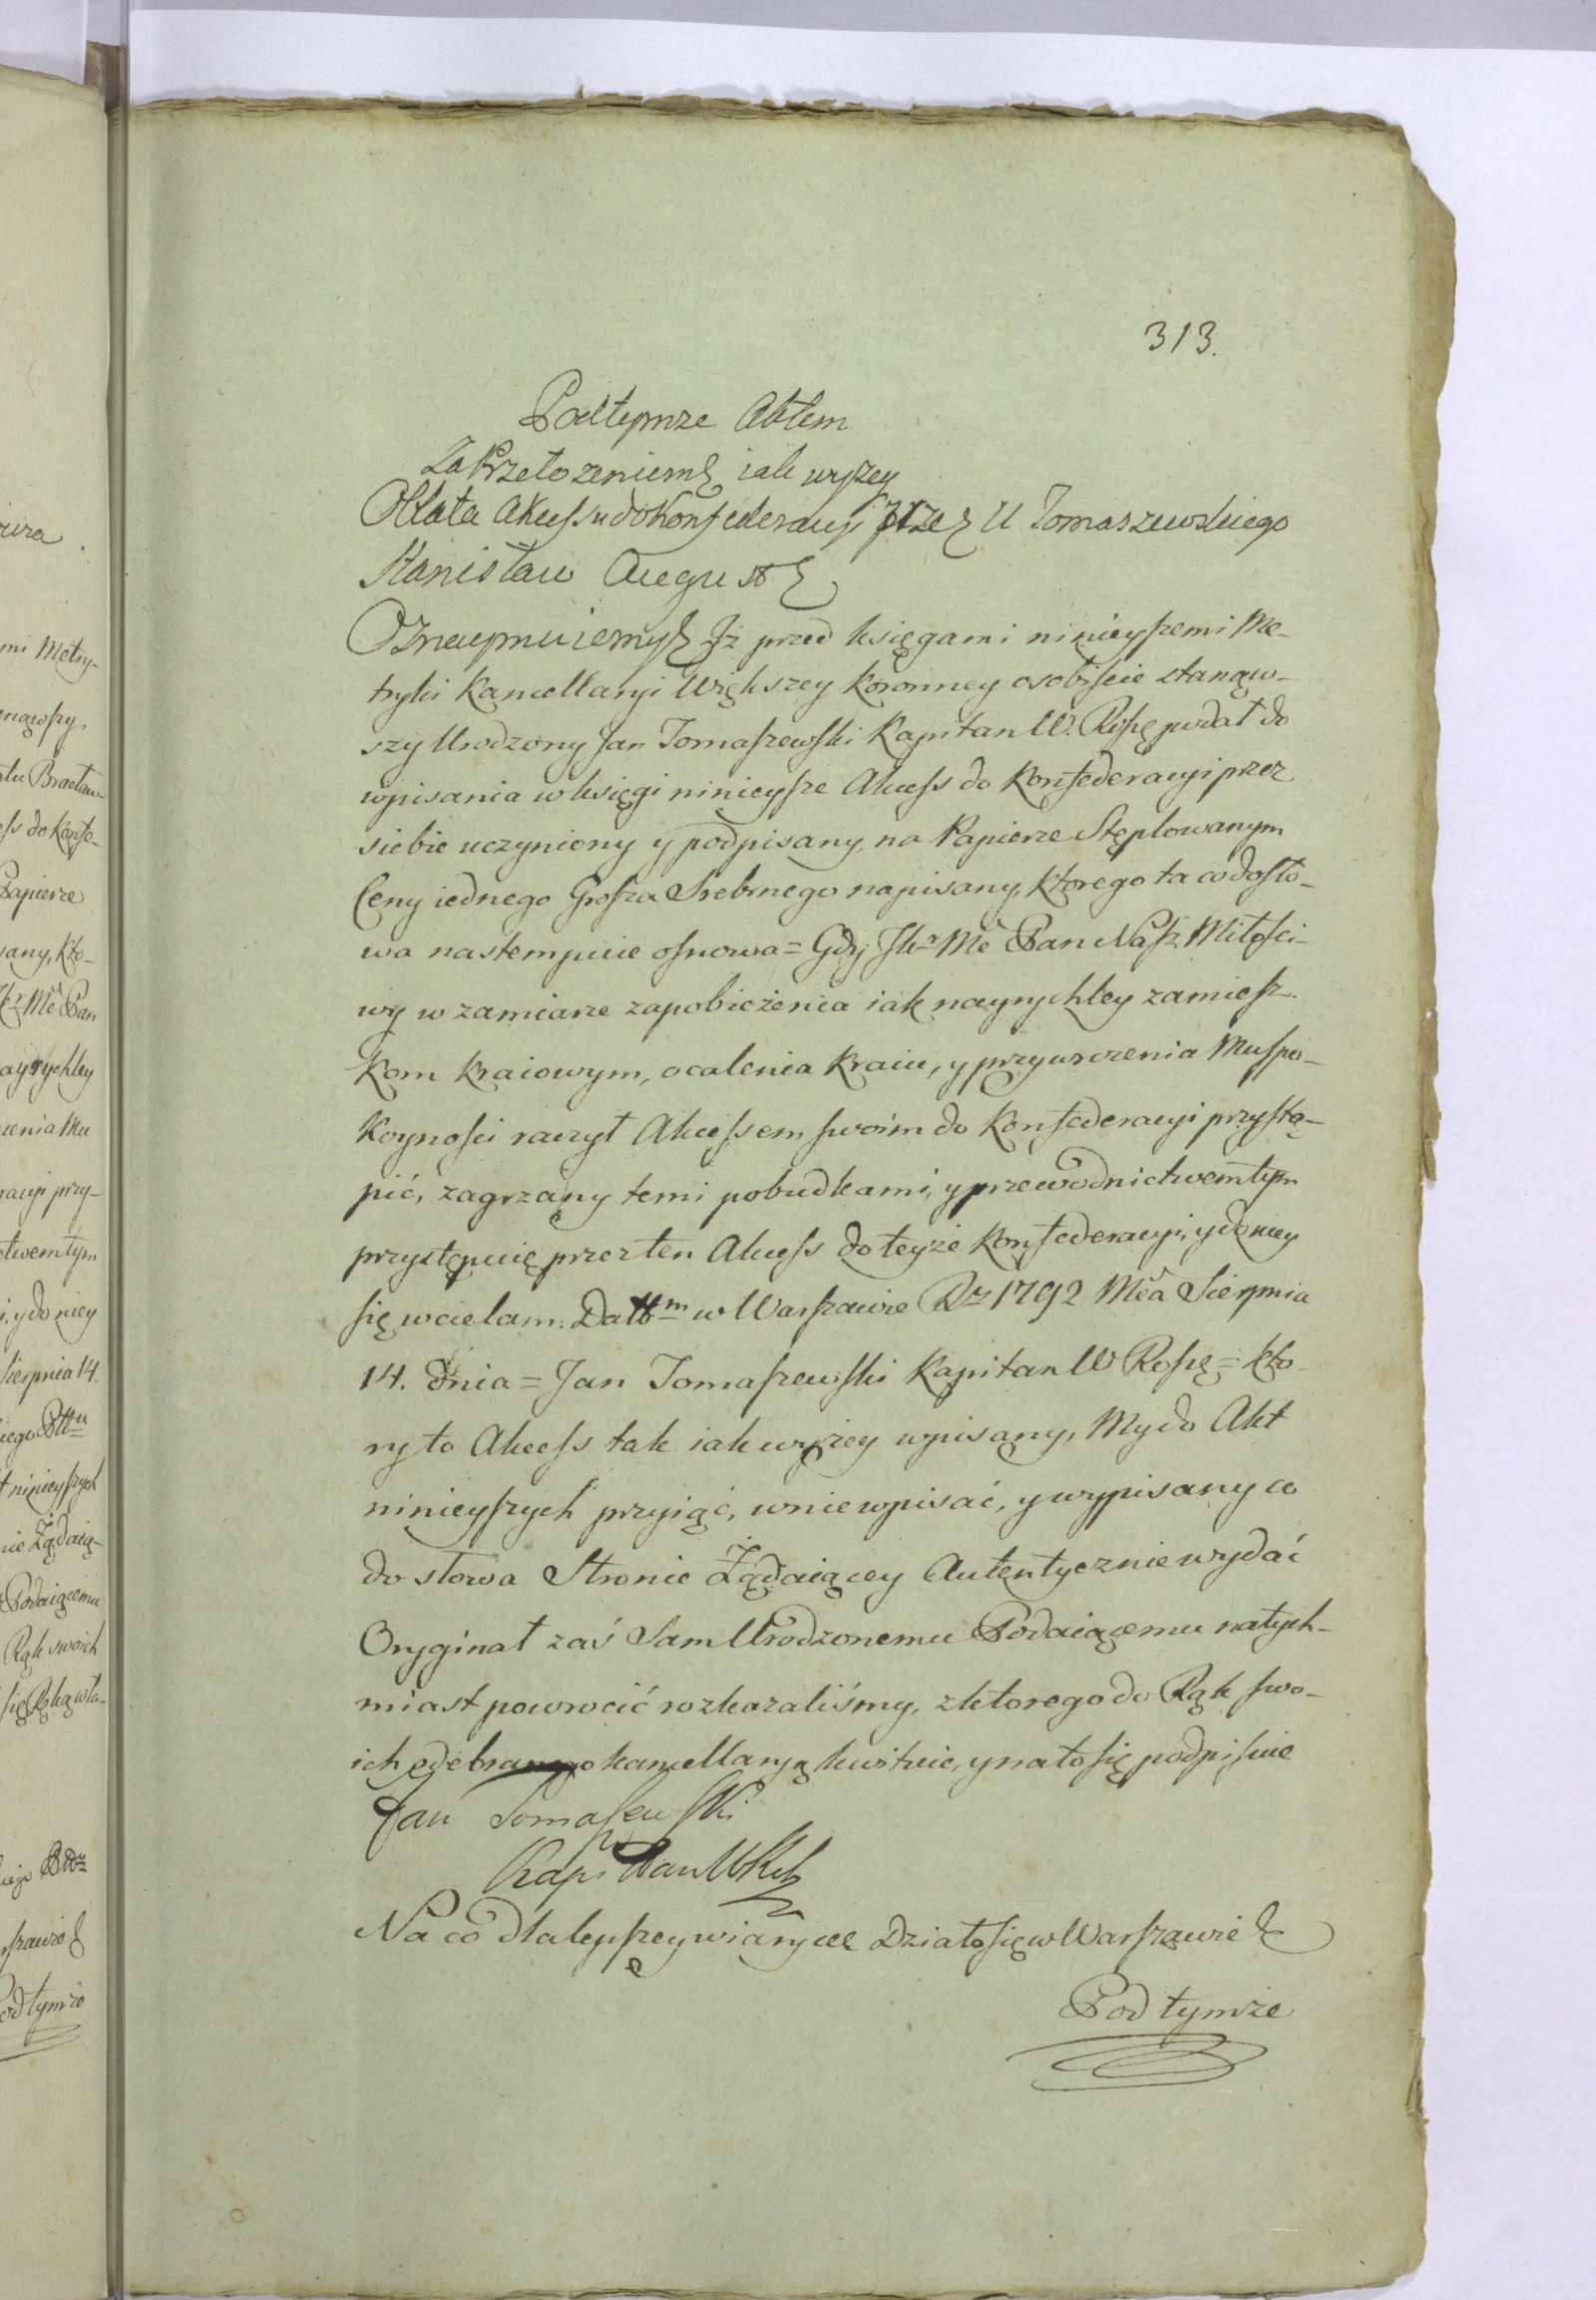 313.
Podtymze Aktem
Za Przełozeniem iak wyzey
Oblata Akcessu do Konfederacyi przez U Tomaszewskiego
Stanisław August
Oznaymuiemy Iż przed księgami ninieyszemi Me-
tryki Kancellaryi Większey Koronney osobiście stanąw-
szy Urodzony Jan Tomaszewski Kapitan W. podał do
wpisania w księgi ninieysze Akcess do Konfederacyi przez
siebie uczyniony y podpisany, na Papierze Stęplowanym
Ceny iednego Grosza Srebrnego napisany, ktorego ta co do sło-
wa nastempuie osnowa = Gdy Jkr Mć Pan Nasz Miłości-
wy w zamiarze zapobieżenia iak nayrychley zamiesz-
kom kraiowym, ocalenia kraiu, y przywrocenia Mu spo-
koyności raczył Akcessem swoim do Konfederacyi przystą-
pić, zagrzany temi pobudkami, y przewodnictwem tym
przystępuię przez ten Akcess do teyże Konfederacyi, y do niey
się wcielam. Dattm w Warszawie Rz 1792 Mca Sierpnia
14. dnia = Jan Tomaszewski Kapitan W = kto-
ry to Akcess tak iak wyżey wpisany, My do Akt
ninieyszych przyiąć, w nie wpisać, y wypisany co
do słowa Stronie Żądaiącey Autentycznie wydać
Oryginał zaś Sam Urodzonemu Podaiącemu natych-
miast powrocić rozkazaliśmy, z ktorego do Rąk swo-
ich odebranego kancellaryą kwituie, y na to się podpisuie
Jan Tomaszewski
Kapitan
Na co dla lepszey wiary etc Działo się w Warszawie
Pod tymże